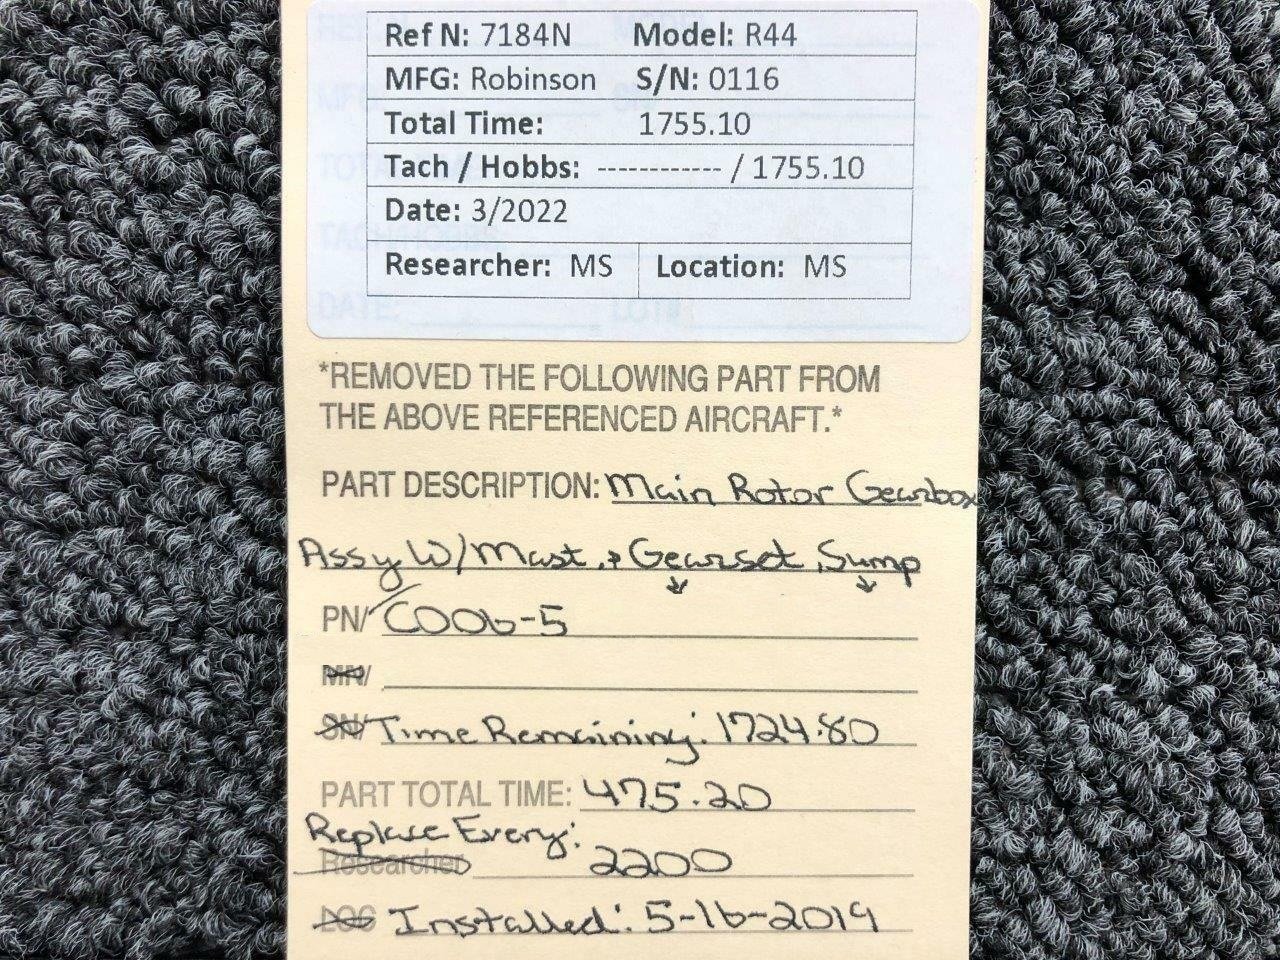 Ref N: 7184N Model: R44
MFG: Robinson S/N: 0116
Total Time: 1755.10
Tach / Hobbs: ------------ / 1755.10
Date: 3/2022
Researcher: MS Location: MS
*REMOVED THE FOLLOWING PART FROM
THE ABOVE REFERENCED AIRCRAFT.*
PART DESCRIPTION: Main Rotor Gearbox
Assy W/Mast, + Gearset, Sump
PN/ C006-5
MN/
SN/ Time Remaining: 1724.80
PART TOTAL TIME: 475.20
Replace Every:
Researcher 2200
LOC Installed: 5-16-2019